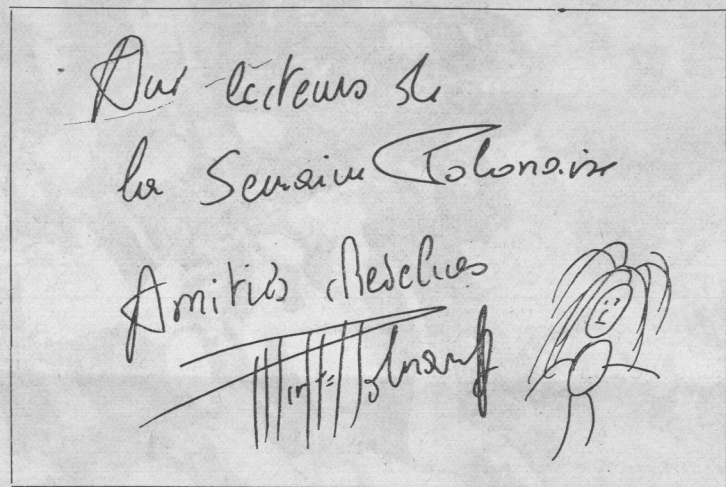 Aux lecteurs de
la Semaine Polonaise
Amitiés